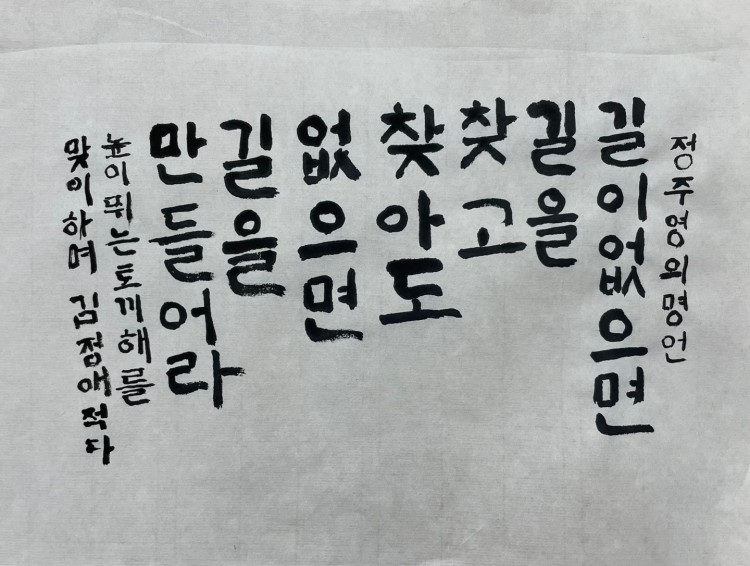 정주영의명언
길이없으면
길을
찾고
찾아도
없으면
길을
만들어라
높이뛰는토끼해를
맞이하며 김점애적다